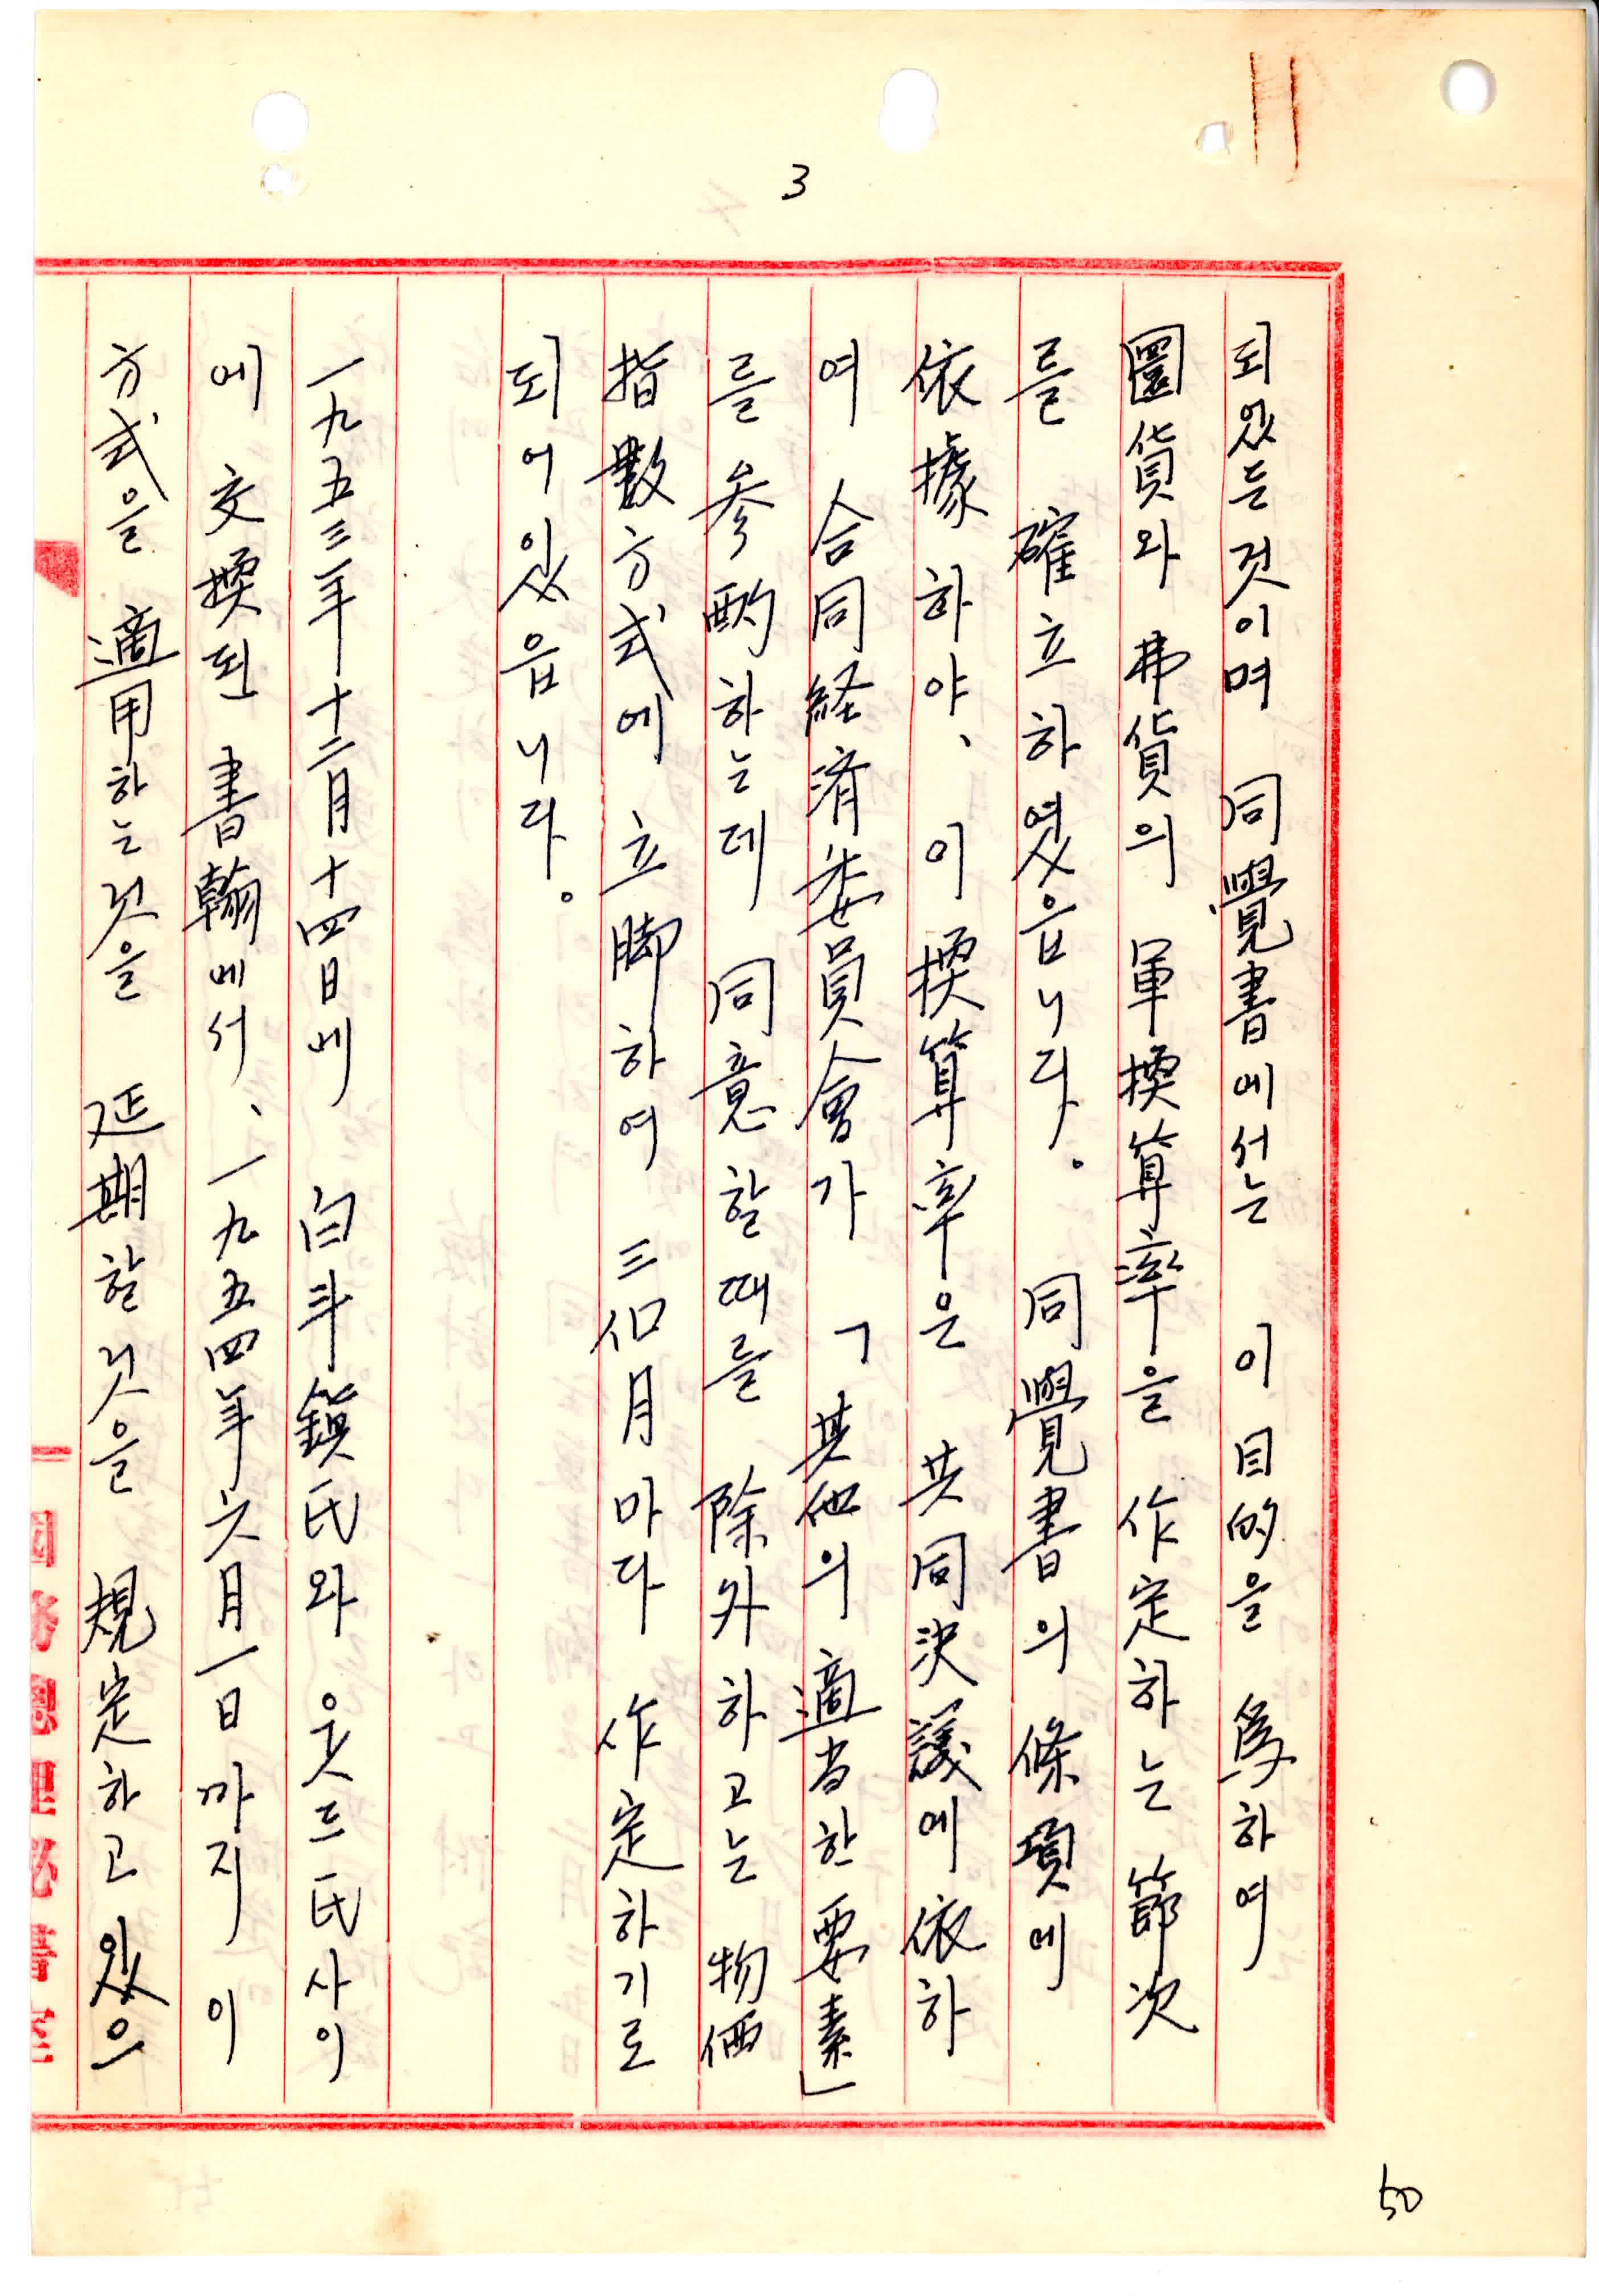 3
되었든것이며 同覺書에서는 이目的을 爲하여
圜貨와 弗貨의 軍換算率을 作定하는 節次
를 確立하였읍니다。 同覺書의 條項에
依據하야、이換算率은 共同決議에 依하
여 合同経済委員會가 「其他의 適当한 要素」
를 参酌하는데 同意할때를 除外하고는 物価
指數方式에 立脚하여 三個月마다 作定하기로
되어있읍니다。
一九五三年十二月十四日에 白斗鎭氏와 웃드氏사이
에 交換된 書翰에서、一九五四年六月一日까지 이
方式을 適用하는것을 延期할것을 規定하고있으
50